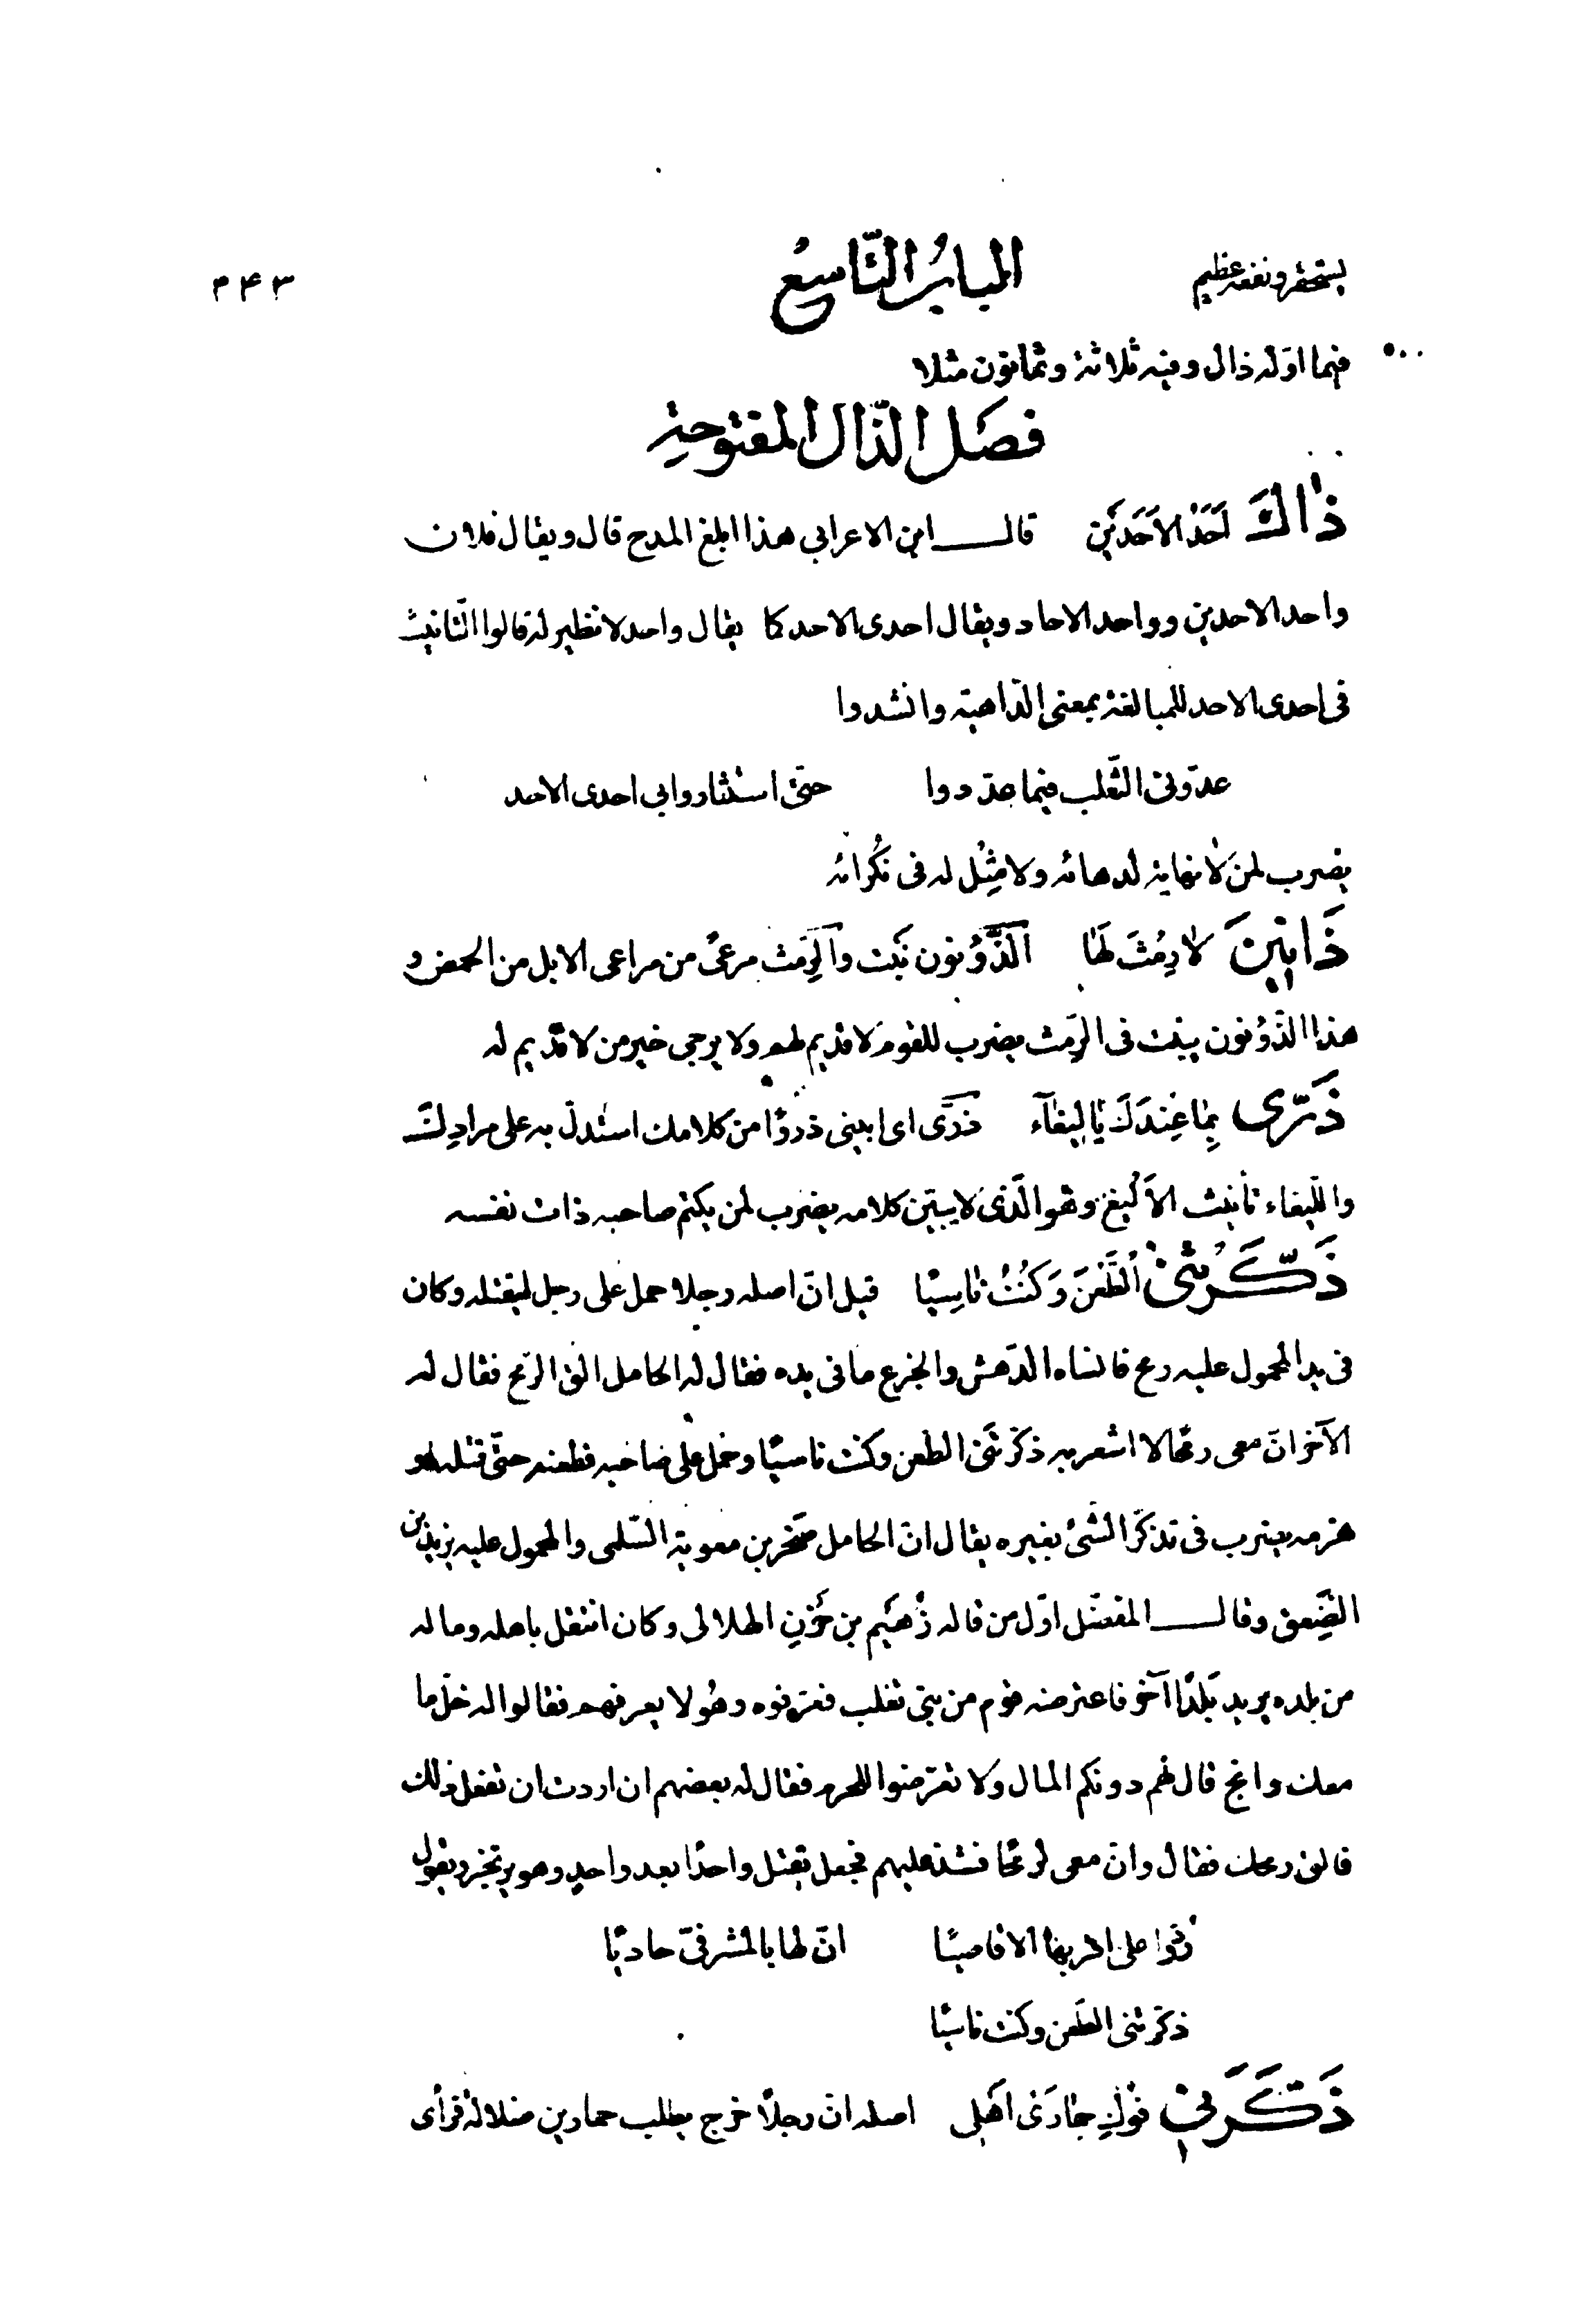 يستحقر ونفعه عظيم
الباب التّاسع
٣۴٣
فيما اوّله ذال وفيه ثلاثة وثمانون مثلا
فصل الذّال المفتوحة
ذاكَ اَحَدُ الاَحَدَيْنِ قال ابن الاعرابي هذا ابلغ المدح قال ويقال فلان
واحد الاحدين وواحد الاحاد ويقال احدى الاحد كما يقال واحد لا نظير له قالوا التّانيث
فى احدى الاحد للمبالغة بمعنى الدّاهية وانشدوا
عدّونى الثّعلب فيما عدّدوا حتّى استثاروا بى احدى الاحد
يضرب لمن لا نهاية لدهائه ولا مِثْل له فى نُكرائه
ذَآنِينَ لا رِمْثَ لَها الذُّؤنون نَبْت والرِّمْث مرعًى من مراعى الابل من الحمض و
هذا الذُّؤنون ينبت فى الرِّمث يضرب للقوم لا قديم لهم ولا يرجى خير من لا قديم له
ذَرّى بِما عِنْدَكَ يا لَيْغآءُ ذرّى اى ابينى ذروًا من كلامك استدلّ به على مرادك
واللّيغاء تأنيث الاَلْيغ وهو الّذى لا يبيّن كلامه يضرب لمن يكتم صاحبه ذات نفسه
ذَكَّرْتَنى الطَّعْنَ وَكُنْتُ ناسِيًا قيل انّ اصله رجلا حمل على رجل ليقتله وكان
فى يد المحمول عليه رمح فانساه الدّهش والجزع ما فى يده فقال له الحامل الق الرّمح فقال له
الآخر انّ معى رمحًا لا اشعر به ذكّرتَنى الطعن وكنت ناسيًا وحمل على صاحبه فطعنه حتّى قتله او
هزمه يضرب فى تذكّر الشّئ بغيره يقال انّ الحامل صخر بن معوية السّلمى والمحمول عليه يزيد بن
الصَّعِق وقال المفضّل اوّل من قاله رُهَيْم بن حَزْنٍ الهلالى وكان انتقل باهله وماله
من بلده يريد بَلَدًا آخر فاعترضه قوم من بنى تغلب فعرفوه وهُو لا يعرفهم فقالوا له خلّ ما
معك وانج قال لهم دونكم المال ولا تعرّضوا للحرم فقال له بعضهم ان اردت ان نفعل ذلك
فالق رمحك فقال وانّ معى لرمحًا فشدّ عليهم فجعل يقتل واحدًا بعد واحدٍ وهو يرتجز ويقول
رُدّوا على اقربها الاقاصيًا انّ لها بالمشرفىّ حاديًا
ذكّرتنى الطّعن وكنت ناسيًا
ذَكَّرَنى فُوكِ حِمارَىْ اَهْلى اصله انّ رجلاً خرج يطلب حمارين ضلاّ له فرأى